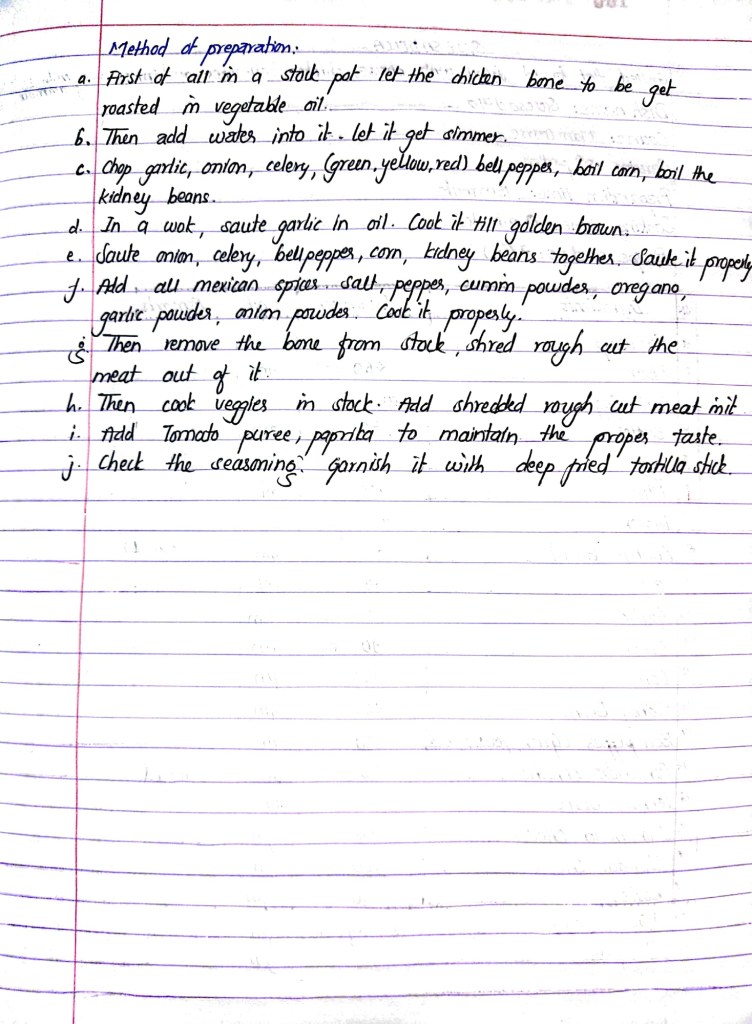 Method of preparation:
a. First of all in a stock pot let the chicken bone to be get
roasted in vegetable oil.
b. Then add water into it. Let it get simmer.
c. Chop garlic, onion, celery, (green, yellow, red) bell pepper, boil corn, boil the
kidney beans.
d. In a wok, saute garlic in oil. Cook it till golden brown.
e. Saute onion, celery, bell pepper, corn, kidney beans together. Saute it properly
f. Add all mexican spices. salt, pepper, cumin powder, oregano,
garlic powder, onion powder. Cook it properly.
g. Then remove the bone from stock, shred rough cut the
meat out of it.
h. Then cook veggies in stock. Add shredded rough cut meat init
i. Add Tomato puree, paprika to maintain the proper taste.
j. Check the seasoning. garnish it with deep fried tortilla stick.